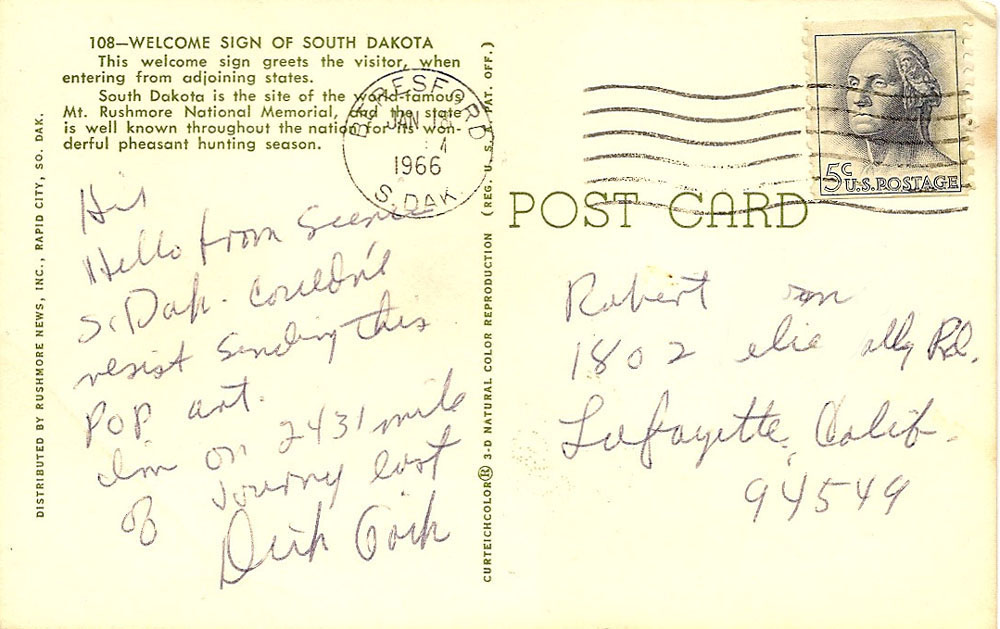 108—WELCOME SIGN OF SOUTH DAKOTA
This welcome sign greets the visitor, when
entering from adjoining states.
South Dakota is the site of the world-famous
Mt. Rushmore National Memorial, and the state
is well known throughout the nation for its won-
derful pheasant hunting season.
BERESFORD
JAN
1966
S. DAK
5c U.S. POSTAGE
POST CARD
DISTRIBUTED BY RUSHMORE NEWS, INC., RAPID CITY, SO. DAK.
CURTEICHCOLOR® 3-D NATURAL COLOR REPRODUCTION (REG. U. S. PAT. OFF.)
Hello from Scenic
S. Dak. Couldn't
resist sending this
Pop art.
I'm on 2431 mile
journey east
of
Dick
Robert
1802 Rd.
Lafayette, Calif.
94549